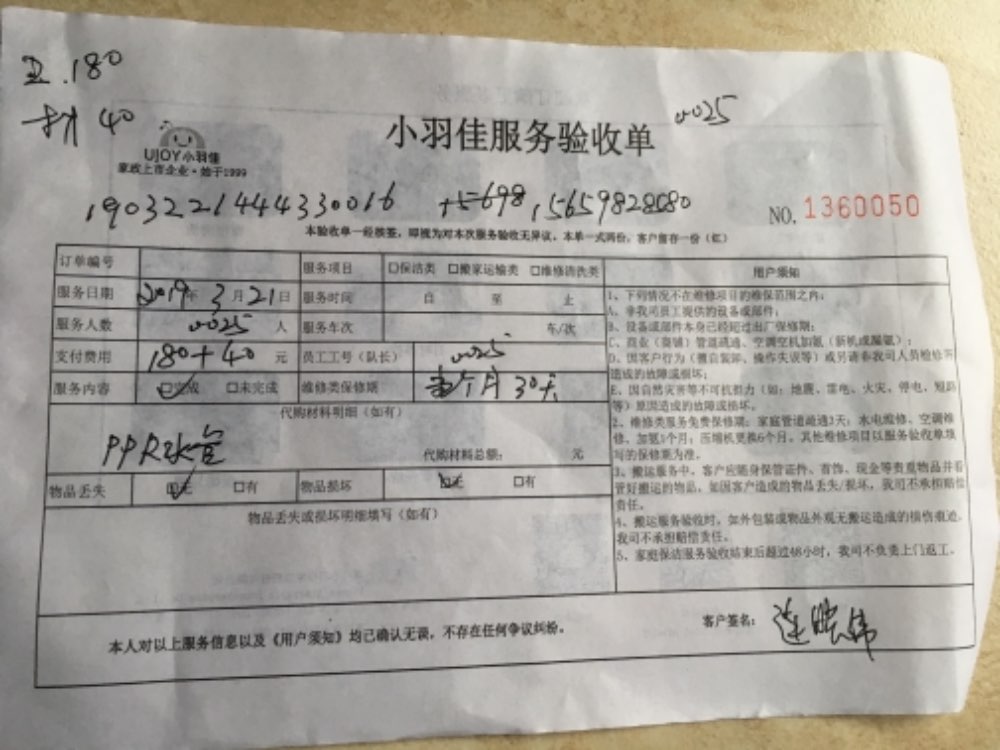 工.180
材 40
UJOY小羽佳
家政上市企业·始于1999
小羽佳服务验收单
0025
1903221444330016
15659828080
NO. 1360050
本验收单一经核签，即视为对本次服务验收无异议，本单一式两份，客户留存一份（红）
订单编号
服务项目 □保洁类 □搬家运输类 □维修清洗类
服务日期 2019年 3月21日 服务时间 自 至 止
服务人数 0025 人 服务车次 车/次
支付费用 180+40 元 员工工号（队长） 0025
服务内容 ☑完成 □未完成 维修类保修期 个月 30天
代购材料明细（如有）
PPR水管
代购材料总额： 元
物品丢失 ☑无 □有 物品损坏 ☑无 □有
物品丢失或损坏明细填写（如有）
用户须知
1、下列情况不在维修项目的维保范围之内：
A、非我司员工提供的设备或部件；
B、设备或部件本身已经超过出厂保修期；
C、商业（商铺）管道疏通、空调空机加氨（新机或漏氨）；
D、因客户行为（擅自装卸、操作失误等）或另请非我司人员检修所
造成的故障或损坏；
E、因自然灾害等不可抗拒力（如：地震、雷电、火灾、停电、短路
等）原因造成的故障或损坏。
2、维修类服务免费保修期：家庭管道疏通3天；水电维修、空调维
修、加氨1个月；压缩机更换6个月。其他维修项目以服务验收单填
写的保修期为准。
3、搬运服务中，客户应随身保管证件、首饰、现金等贵重物品并看
管好搬运的物品，如因客户造成的物品丢失/损坏，我司不承担赔偿
责任。
4、搬运服务验收时，如外包装或物品外观无搬运造成的损伤痕迹，
我司不承担赔偿责任。
5、家庭保洁服务验收结束后超过48小时，我司不负责上门返工。
本人对以上服务信息以及《用户须知》均已确认无误，不存在任何争议纠纷。
客户签名：